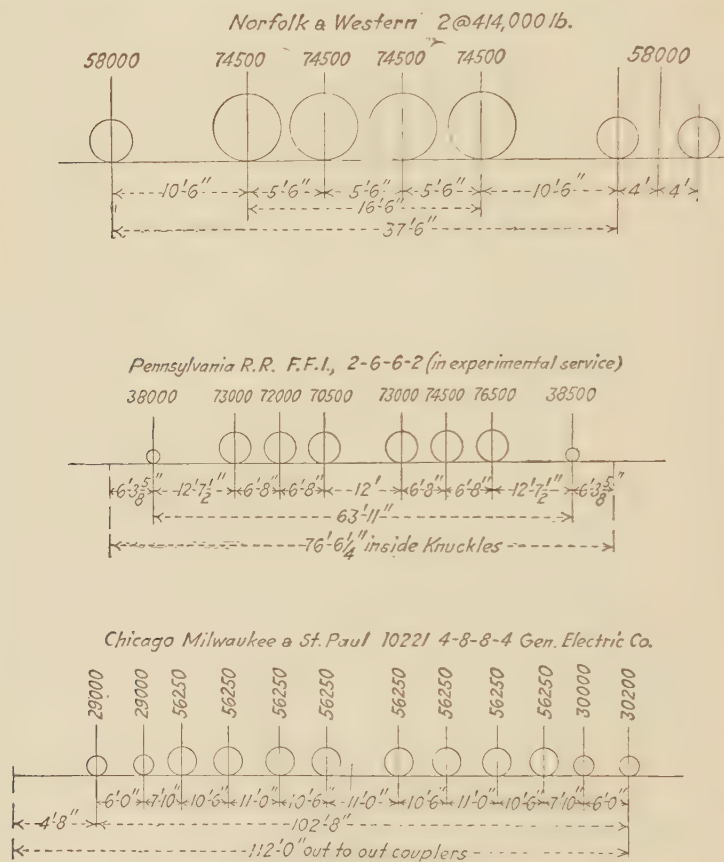 Norfolk & Western 2@414,000 lb.
58000 74500 74500 74500 74500 58000
10'6" 5'6" 5'6" 5'6" 10'6" 4' 4'
16'6"
37'6"
Pennsylvania R.R. F.F.I., 2-6-6-2 (in experimental service)
38000 73000 72000 70500 73000 74500 76500 38500
6'3 5/8" 12'7 1/2" 6'8" 6'8" 12' 6'8" 6'8" 12'7 1/2" 6'3 5/8"
63'11"
76'6 1/4" inside Knuckles
Chicago Milwaukee & St. Paul 10221 4-8-8-4 Gen. Electric Co.
29000 29000 56250 56250 56250 56250 56250 56250 56250 56250 30000 30200
6'0" 7'10" 10'6" 11'0" 10'6" 11'0" 10'6" 11'0" 10'6" 7'10" 6'0"
4'8" 102'8"
112'0" out to out couplers